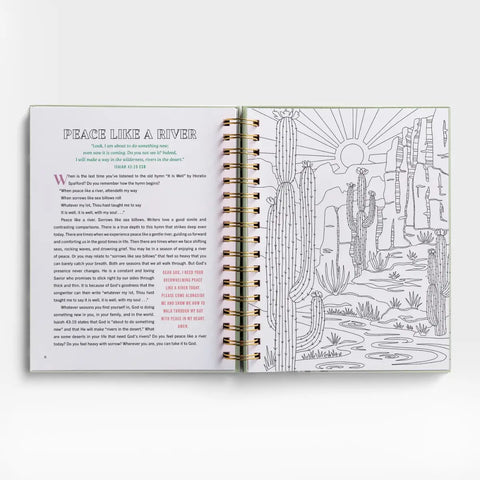 PEACE LIKE A RIVER
"Look, I am about to do something new;
even now it is coming. Do you not see it? Indeed,
I will make a way in the wilderness, rivers in the desert."
ISAIAH 43:19 CSB
When is the last time you've listened to the old hymn "It Is Well" by Horatio
Spafford? Do you remember how the hymn begins?
"When peace like a river, attendeth my way
When sorrows like sea billows roll
Whatever my lot, Thou hast taught me to say
It is well, it is well, with my soul . . ."
Peace like a river. Sorrows like sea billows. Writers love a good simile and
contrasting comparisons. There is a true depth to this hymn that strikes deep even
today. There are times when we experience peace like a gentle river, guiding us forward
and comforting us in the good times in life. Then there are times when we face shifting
seas, rocking waves, and drowning grief. You may be in a season of enjoying a river
of peace. Or you may relate to "sorrows like sea billows" that feel so heavy that you
can barely catch your breath. Both are seasons that we all walk through. But God's
presence never changes. He is a constant and loving
Savior who promises to stick right by our sides through
thick and thin. It is because of God's goodness that the
songwriter can then write "whatever my lot, Thou hast
taught me to say it is well, it is well, with my soul . . ."
Whatever seasons you find yourself in, God is doing
something new in you, in your family, and in the world.
Isaiah 43:19 states that God is "about to do something
new" and that He will make "rivers in the desert." What
are some deserts in your life that need God's rivers? Do you feel peace like a river
today? Do you feel heavy with sorrow? Wherever you are, you can take it to God.
DEAR GOD, I NEED YOUR
OVERWHELMING PEACE
LIKE A RIVER TODAY.
PLEASE COME ALONGSIDE
ME AND SHOW ME HOW TO
WALK THROUGH MY DAY
WITH PEACE IN MY HEART.
AMEN.